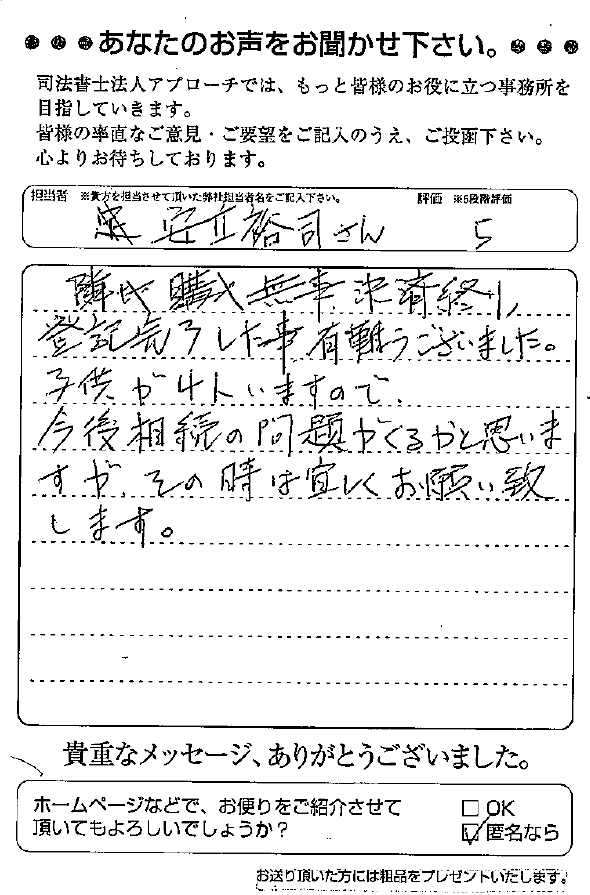 あなたのお声をお聞かせ下さい。
司法書士法人アプローチでは、もっと皆様のお役に立つ事務所を
目指していきます。
皆様の率直なご意見・ご要望をご記入のうえ、ご投函下さい。
心よりお待ちしております。
担当者 ※貴方を担当させて頂いた弊社担当者名をご記入下さい。 評価 ※5段階評価
安立裕司さん 5
隣地購入無事決済終り、
登記完了した事有難うございました。
子供が4人いますので、
今後相続の問題がくるかと思いま
すが、その時は宜しくお願い致
します。
貴重なメッセージ、ありがとうございました。
ホームページなどで、お便りをご紹介させて
頂いてもよろしいでしょうか?
OK
匿名なら
お送り頂いた方には粗品をプレゼントいたします。